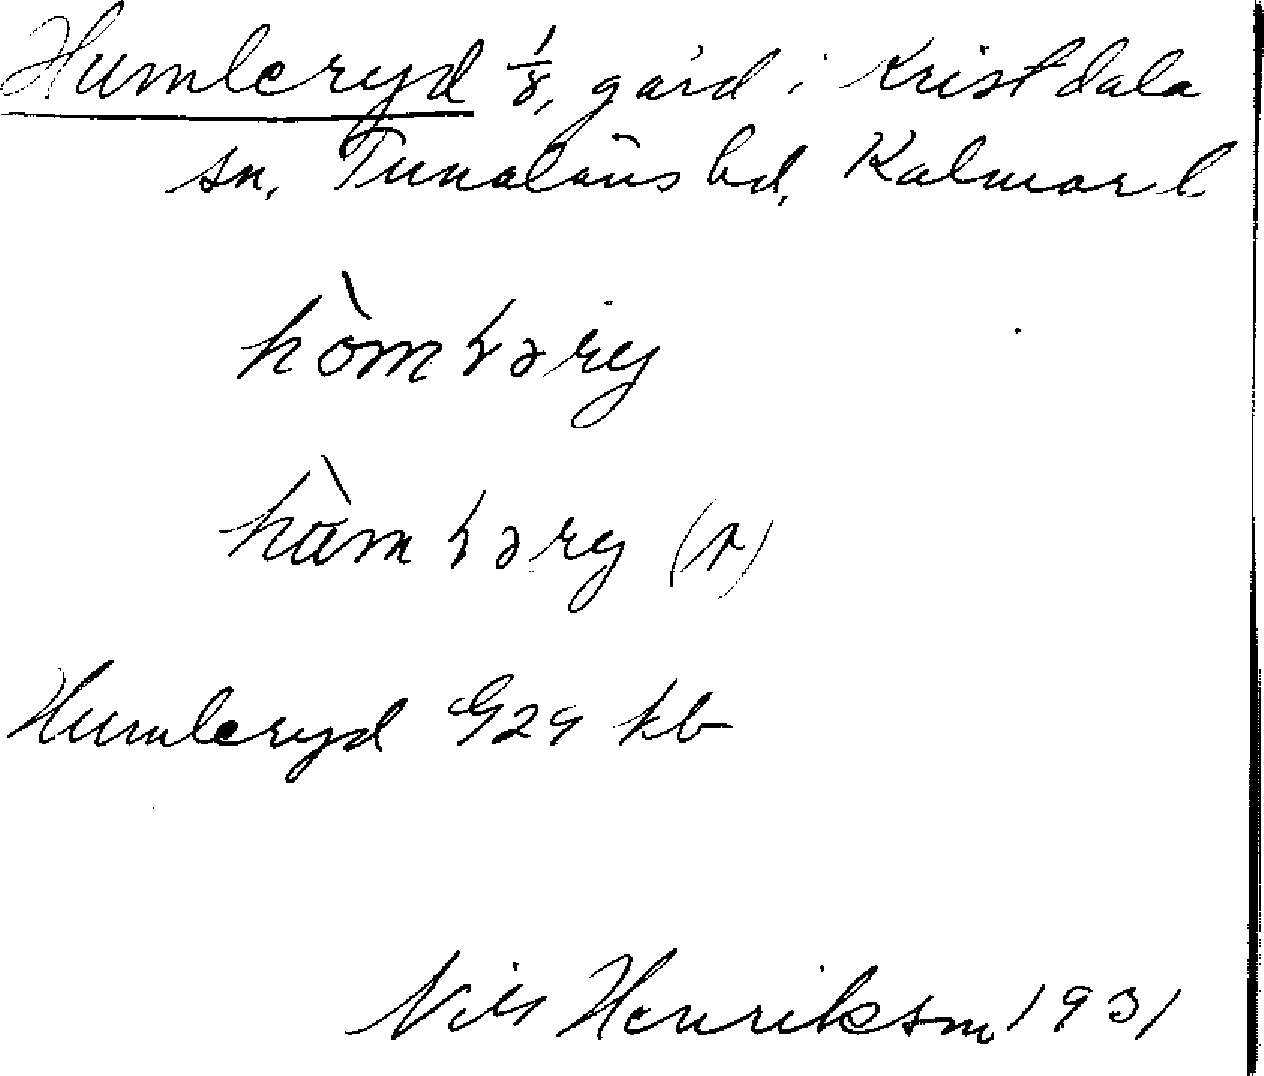 Humleryd 1/8, gård i Kristdala
sn, Tunaläns hd, Kalmar l.
Humleryd G29 kb
Nils Henrikson 1931